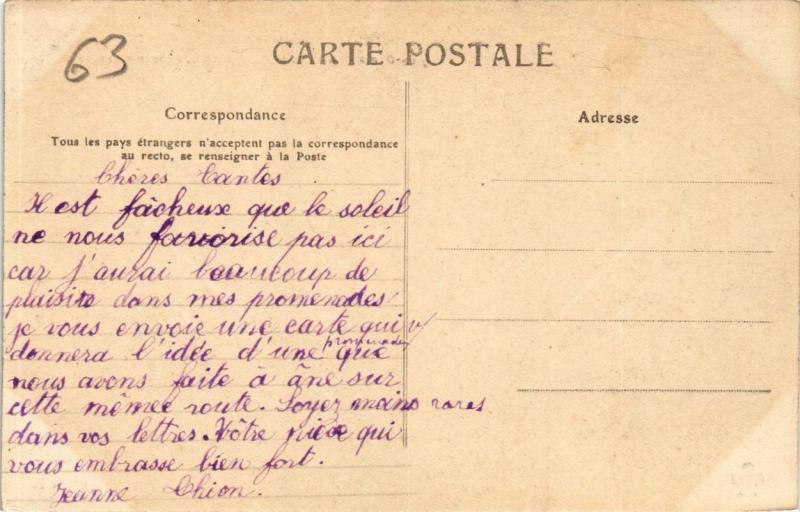 63
CARTE POSTALE
Correspondance
Tous les pays étrangers n'acceptent pas la correspondance
au recto, se renseigner à la Poste
Adresse
Chères Tantes
Il est fâcheuse que le soleil
ne nous favorise pas ici
car j'aurai beaucoup de
plaisire dans mes promenades
je vous envoie une carte qui v/
donnera l'idée d'une promenade que
nous avons faite à âne sur
cette mêmee route. Soyez moins rares
dans vos lettres. Vôtre nièce qui
vous embrasse bien fort.
Jeanne Chion.